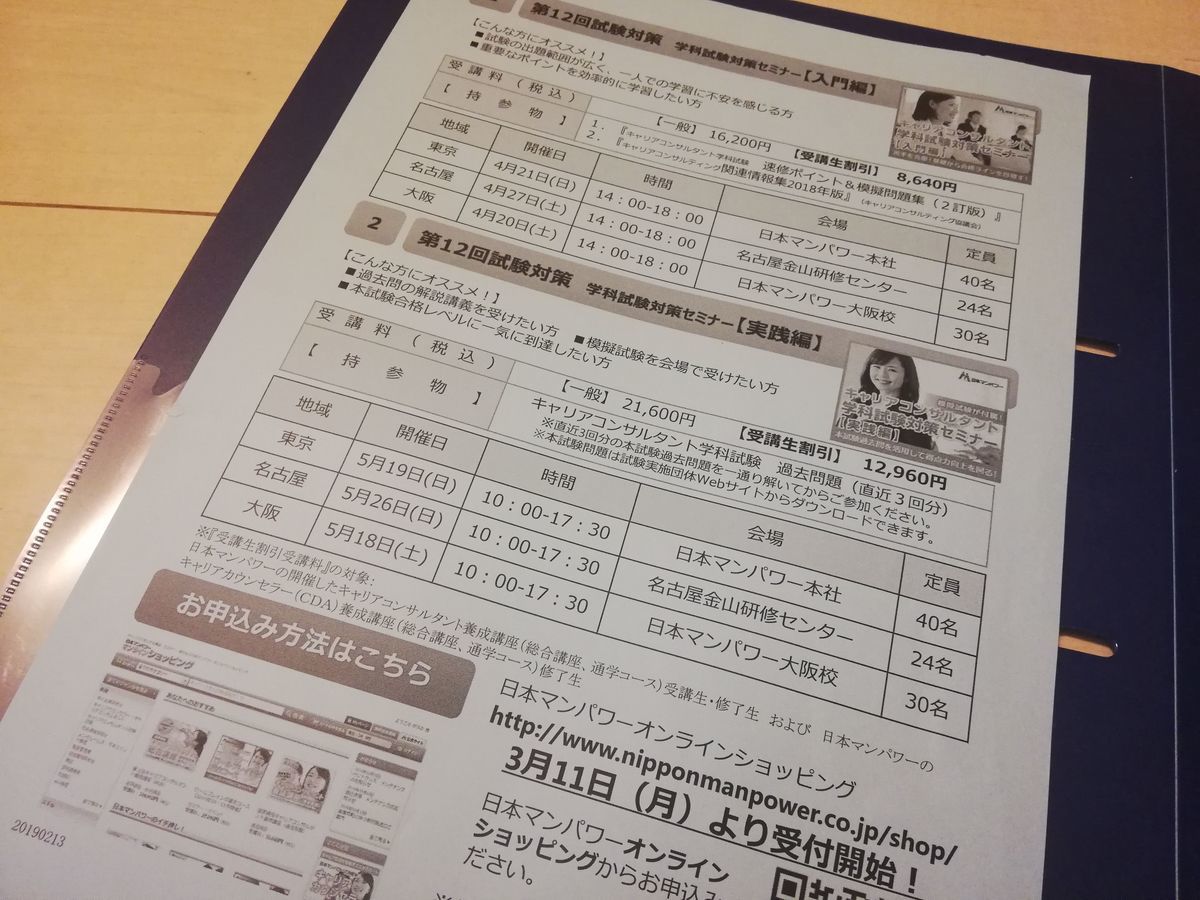 第12回試験対策 学科試験対策セミナー【入門編】
【こんな方にオススメ！】
■試験の出題範囲が広く、一人での学習に不安を感じる方
■重要なポイントを効率的に学習したい方
キャリアコンサルタント
学科試験対策セミナー
【入門編】
受講料(税込) 【一般】 16,200円 【受講生割引】 8,640円
【持参物】 1．『キャリアコンサルタント学科試験 速修ポイント＆模擬問題集（２訂版）』
2．『キャリアコンサルティング関連情報集2018年版』（キャリアコンサルティング協議会）
地域 開催日 時間 会場 定員
東京 4月21日(日) 14：00-18：00 日本マンパワー本社 40名
名古屋 4月27日(土) 14：00-18：00 名古屋金山研修センター 24名
大阪 4月20日(土) 14：00-18：00 日本マンパワー大阪校 30名
2 第12回試験対策 学科試験対策セミナー【実践編】
【こんな方にオススメ！】
■過去問の解説講義を受けたい方 ■模擬試験を会場で受けたい方
■本試験合格レベルに一気に到達したい方
日本マンパワー
模擬試験が付属！
キャリアコンサルタント
学科試験対策セミナー
【実践編】
本試験過去問を活用して得点力向上を図る！
受講料(税込) 【一般】 21,600円 【受講生割引】 12,960円
【持参物】 キャリアコンサルタント学科試験 過去問題（直近３回分）
※直近3回分の本試験過去問題を一通り解いてからご参加ください。
※本試験問題は試験実施団体Webサイトからダウンロードできます。
地域 開催日 時間 会場 定員
東京 5月19日(日) 10：00-17：30 日本マンパワー本社 40名
名古屋 5月26日(日) 10：00-17：30 名古屋金山研修センター 24名
大阪 5月18日(土) 10：00-17：30 日本マンパワー大阪校 30名
※『受講生割引受講料』の対象：
日本マンパワーの開催したキャリアコンサルタント養成講座（総合講座、通学コース）受講生・修了生 および 日本マンパワーの
キャリアカウンセラー（CDA）養成講座（総合講座、通学コース）修了生
お申込み方法はこちら
日本マンパワー
オンラインショッピング
あなたへのおすすめ
日本マンパワーのイチ押し！
日本マンパワーオンラインショッピング
http://www.nipponmanpower.co.jp/shop/
3月11日（月）より受付開始！
日本マンパワーオンライン
ショッピングからお申込み
ださい。
20190213